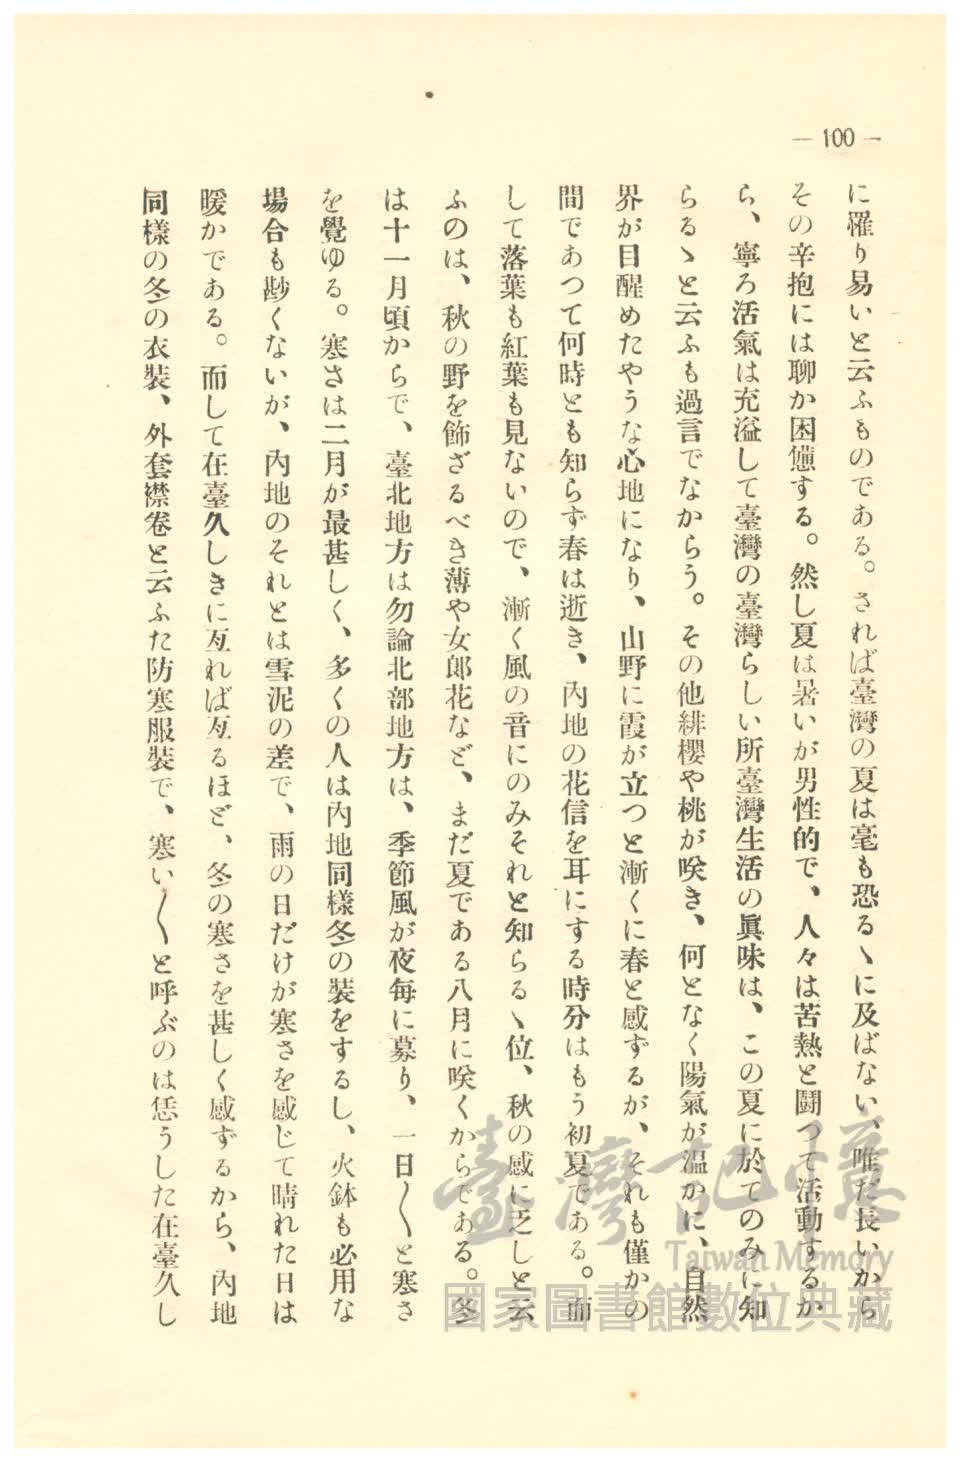 — 100 —
に罹り易いと云ふものである。されば臺灣の夏は毫も恐るゝに及ばない、唯だ長いから
その辛抱には聊か困憊する。然し夏は暑いが男性的で、人々は苦熱と鬪つて活動するか
ら、寧ろ活氣は充溢して臺灣の臺灣らしい所臺灣生活の眞味は、この夏に於てのみに知
らるゝと云ふも過言でなからう。その他緋櫻や桃が咲き、何となく陽氣が温かに、自然
界が目醒めたやうな心地になり、山野に霞が立つと漸くに春と感ずるが、それも僅かの
間であつて何時とも知らず春は逝き、內地の花信を耳にする時分はもう初夏である。而
して落葉も紅葉も見ないので、漸く風の音にのみそれと知らるゝ位、秋の感に乏しと云
ふのは、秋の野を飾ざるべき薄や女郎花など、まだ夏である八月に咲くからである。冬
は十一月頃からで、臺北地方は勿論北部地方は、季節風が夜每に募り、一日〱と寒さ
を覺ゆる。寒さは二月が最甚しく、多くの人は內地同樣冬の裝をするし、火鉢も必用な
場合も尠くないが、內地のそれとは雪泥の差で、雨の日だけが寒さを感じて晴れた日は
暖かである。而して在臺久しきに亙れば亙るほど、冬の寒さを甚しく感ずるから、內地
同樣の冬の衣裝、外套襟卷と云ふた防寒服裝で、寒い〱と呼ぶのは恁うした在臺久し
臺灣記憶
Taiwan Memory
國家圖書館數位典藏